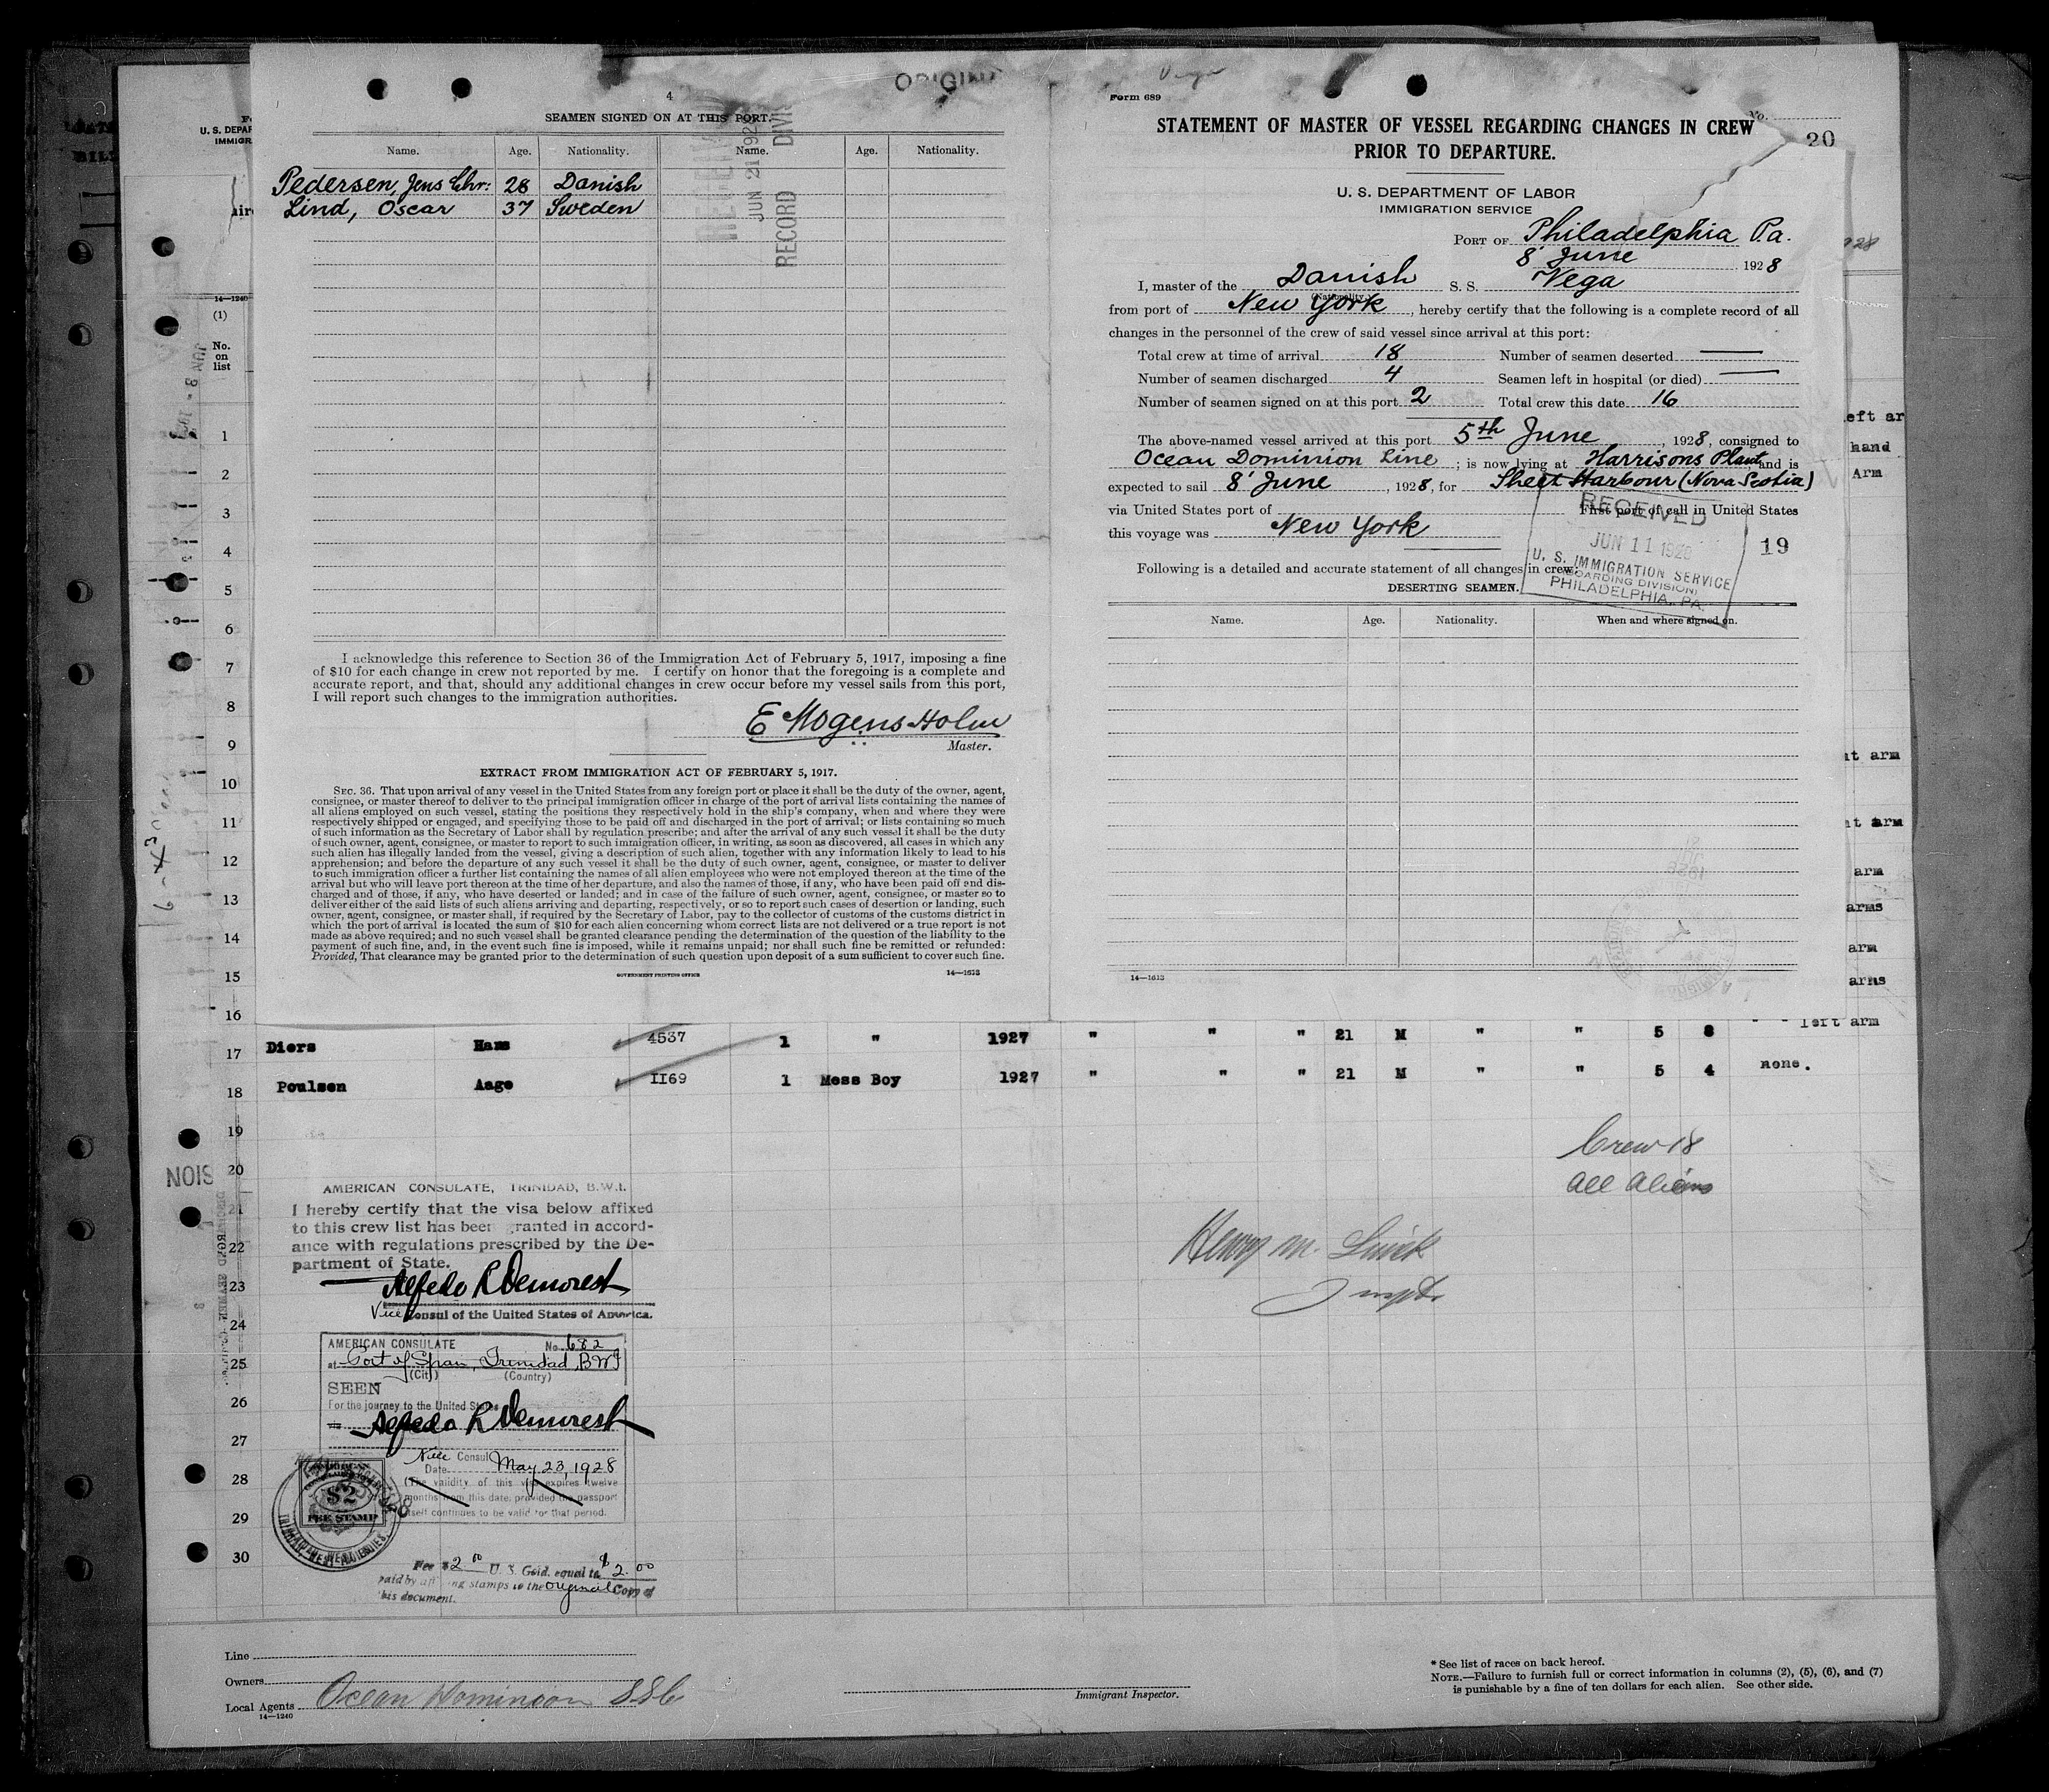 4
ORIGIN
SEAMEN SIGNED ON AT THIS PORT.
Name. Age. Nationality. Name. Age. Nationality.
Pedersen, Jens Chr: 28 Danish
Lind, Oscar 37 Sweden
JUN 21 192
RECORD DIVIS
I acknowledge this reference to Section 36 of the Immigration Act of February 5, 1917, imposing a fine
of $10 for each change in crew not reported by me. I certify on honor that the foregoing is a complete and
accurate report, and that, should any additional changes in crew occur before my vessel sails from this port,
I will report such changes to the immigration authorities.
E Mogens Holm
Master.
EXTRACT FROM IMMIGRATION ACT OF FEBRUARY 5, 1917.
SEC. 36. That upon arrival of any vessel in the United States from any foreign port or place it shall be the duty of the owner, agent,
consignee, or master thereof to deliver to the principal immigration officer in charge of the port of arrival lists containing the names of
all aliens employed on such vessel, stating the positions they respectively hold in the ship's company, when and where they were
respectively shipped or engaged, and specifying those to be paid off and discharged in the port of arrival; or lists containing so much
of such information as the Secretary of Labor shall by regulation prescribe; and after the arrival of any such vessel it shall be the duty
of such owner, agent, consignee, or master to report to such immigration officer, in writing, as soon as discovered, all cases in which any
such alien has illegally landed from the vessel, giving a description of such alien, together with any information likely to lead to his
apprehension; and before the departure of any such vessel it shall be the duty of such owner, agent, consignee, or master to deliver
to such immigration officer a further list containing the names of all alien employees who were not employed thereon at the time of the
arrival but who will leave port thereon at the time of her departure, and also the names of those, if any, who have been paid off and dis-
charged and of those, if any, who have deserted or landed; and in case of the failure of such owner, agent, consignee, or master so to
deliver either of the said lists of such aliens arriving and departing, respectively, or so to report such cases of desertion or landing, such
owner, agent, consignee, or master shall, if required by the Secretary of Labor, pay to the collector of customs of the customs district in
which the port of arrival is located the sum of $10 for each alien concerning whom correct lists are not delivered or a true report is not
made as above required; and no such vessel shall be granted clearance pending the determination of the question of the liability to the
payment of such fine, and, in the event such fine is imposed, while it remains unpaid; nor shall such fine be remitted or refunded:
Provided, That clearance may be granted prior to the determination of such question upon deposit of a sum sufficient to cover such fine.
GOVERNMENT PRINTING OFFICE 14—1613
Form 689
No.
20
STATEMENT OF MASTER OF VESSEL REGARDING CHANGES IN CREW
PRIOR TO DEPARTURE.
U. S. DEPARTMENT OF LABOR
IMMIGRATION SERVICE
PORT OF Philadelphia Pa.
8' June 1928
I, master of the Danish S. S. Vega
(Nationality.)
from port of New York, hereby certify that the following is a complete record of all
changes in the personnel of the crew of said vessel since arrival at this port:
Total crew at time of arrival 18 Number of seamen deserted —
Number of seamen discharged 4 Seamen left in hospital (or died) —
Number of seamen signed on at this port 2 Total crew this date 16
The above-named vessel arrived at this port 5th June, 1928, consigned to
Ocean Dominion Line; is now lying at Harrisons Plant and is
expected to sail 8' June, 1928, for Sheet Harbour (Nova Scotia)
via United States port of First port of call in United States
this voyage was New York
RECEIVED
JUN 11 1928
U. S. IMMIGRATION SERVICE
BOARDING DIVISION
PHILADELPHIA, PA.
19
Following is a detailed and accurate statement of all changes in crew:
DESERTING SEAMEN.
Name. Age. Nationality. When and where signed on.
14—1613
U. S. DEPAR
IMMIGR
14—1240
(1)
No.
on
list
1
2
3
4
5
6
7
8
9
10
11
12
13
14
15
16
left ar
hand
Arm
arm
arm
arm
arms
arm
arms
left arm
17 Diers Hans 4537 1 " 1927 " " " 21 M " " 5 8
18 Poulsen Aage II69 1 Mess Boy 1927 " " " 21 M " " 5 4 none.
19
20
21
22
23
24
25
26
27
28
29
30
Crew 18
All Aliens
Henry M.
Inspt.
AMERICAN CONSULATE, TRINIDAD, B.W.I.
I hereby certify that the visa below affixed
to this crew list has been granted in accord-
ance with regulations prescribed by the De-
partment of State.
Alfedo R Demorest
Vice Consul of the United States of America.
AMERICAN CONSULATE No. 682
at Port of Spain, Trinidad, BWI
(City) (Country)
SEEN
For the journey to the United States
Alfedo R Demorest
Vice Consul
Date May 23, 1928
(The validity of this visa expires twelve
months from this date, provided the passport
itself continues to be valid for that period.
$2
FEE STAMP
Fee $2.00 U. S. Gold, equal to $2.00
paid by affixing stamps to the original Copy of
this document.
Line
Owners
Local Agents Ocean Dominion SSC
14—1240
Immigrant Inspector.
* See list of races on back hereof.
NOTE.—Failure to furnish full or correct information in columns (2), (5), (6), and (7)
is punishable by a fine of ten dollars for each alien. See other side.